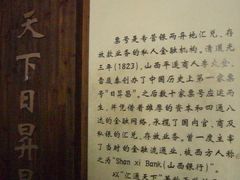 天下日昇
票号是专营银两异地汇兑、存
放款业务的私人金融机构。清道光
三年(1823),山西平遥商人李大全、
雷履泰创办了中国历史上第一家票
号"日昇昌"。之后数十家票号应运而
生,并凭借着雄厚的资本和四通八
达的金融网络,承揽了国内官、商及
私银的汇兑、存放款业务,曾一度主宰
了当时的金融流通业,被西方人称
之为"Shan xi Bank(山西银行)"。
以"汇通天下"